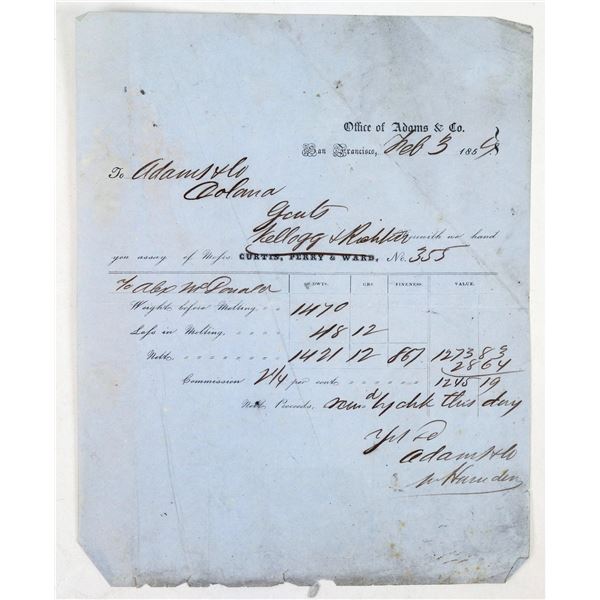 Office of Adams & Co.
San Francisco, Feb 3 185
To Adams & Co
Coloma
Gents
Kellogg & Richter Herewith we hand
you assay of Messrs CURTIS, PERRY & WARD, No. 355
To Alex McDonald DWTS. GRS. FINENESS. VALUE.
Weight before Melting, 1470
Loss in Melting, 48 12
Nett 1421 12 867 1273 83
28 64
Commission 2 1/4 per cent. 1245 19
Nett Proceeds, rem'd by chk this day
Yrs
Adams & Co